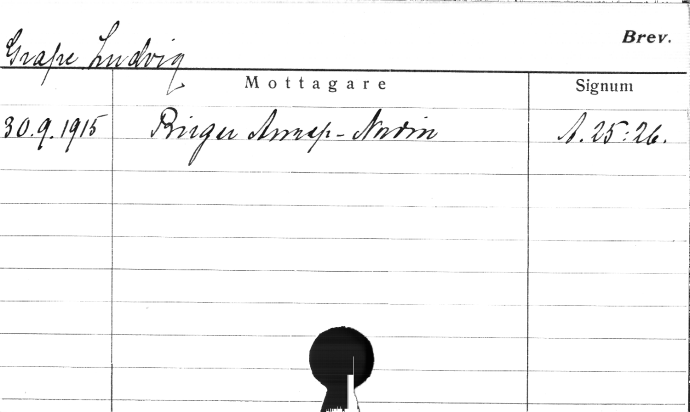 Brev.
Grape Ludvig
Mottagare Signum
30.9.1915 Birger -Nordin A. 25:26.